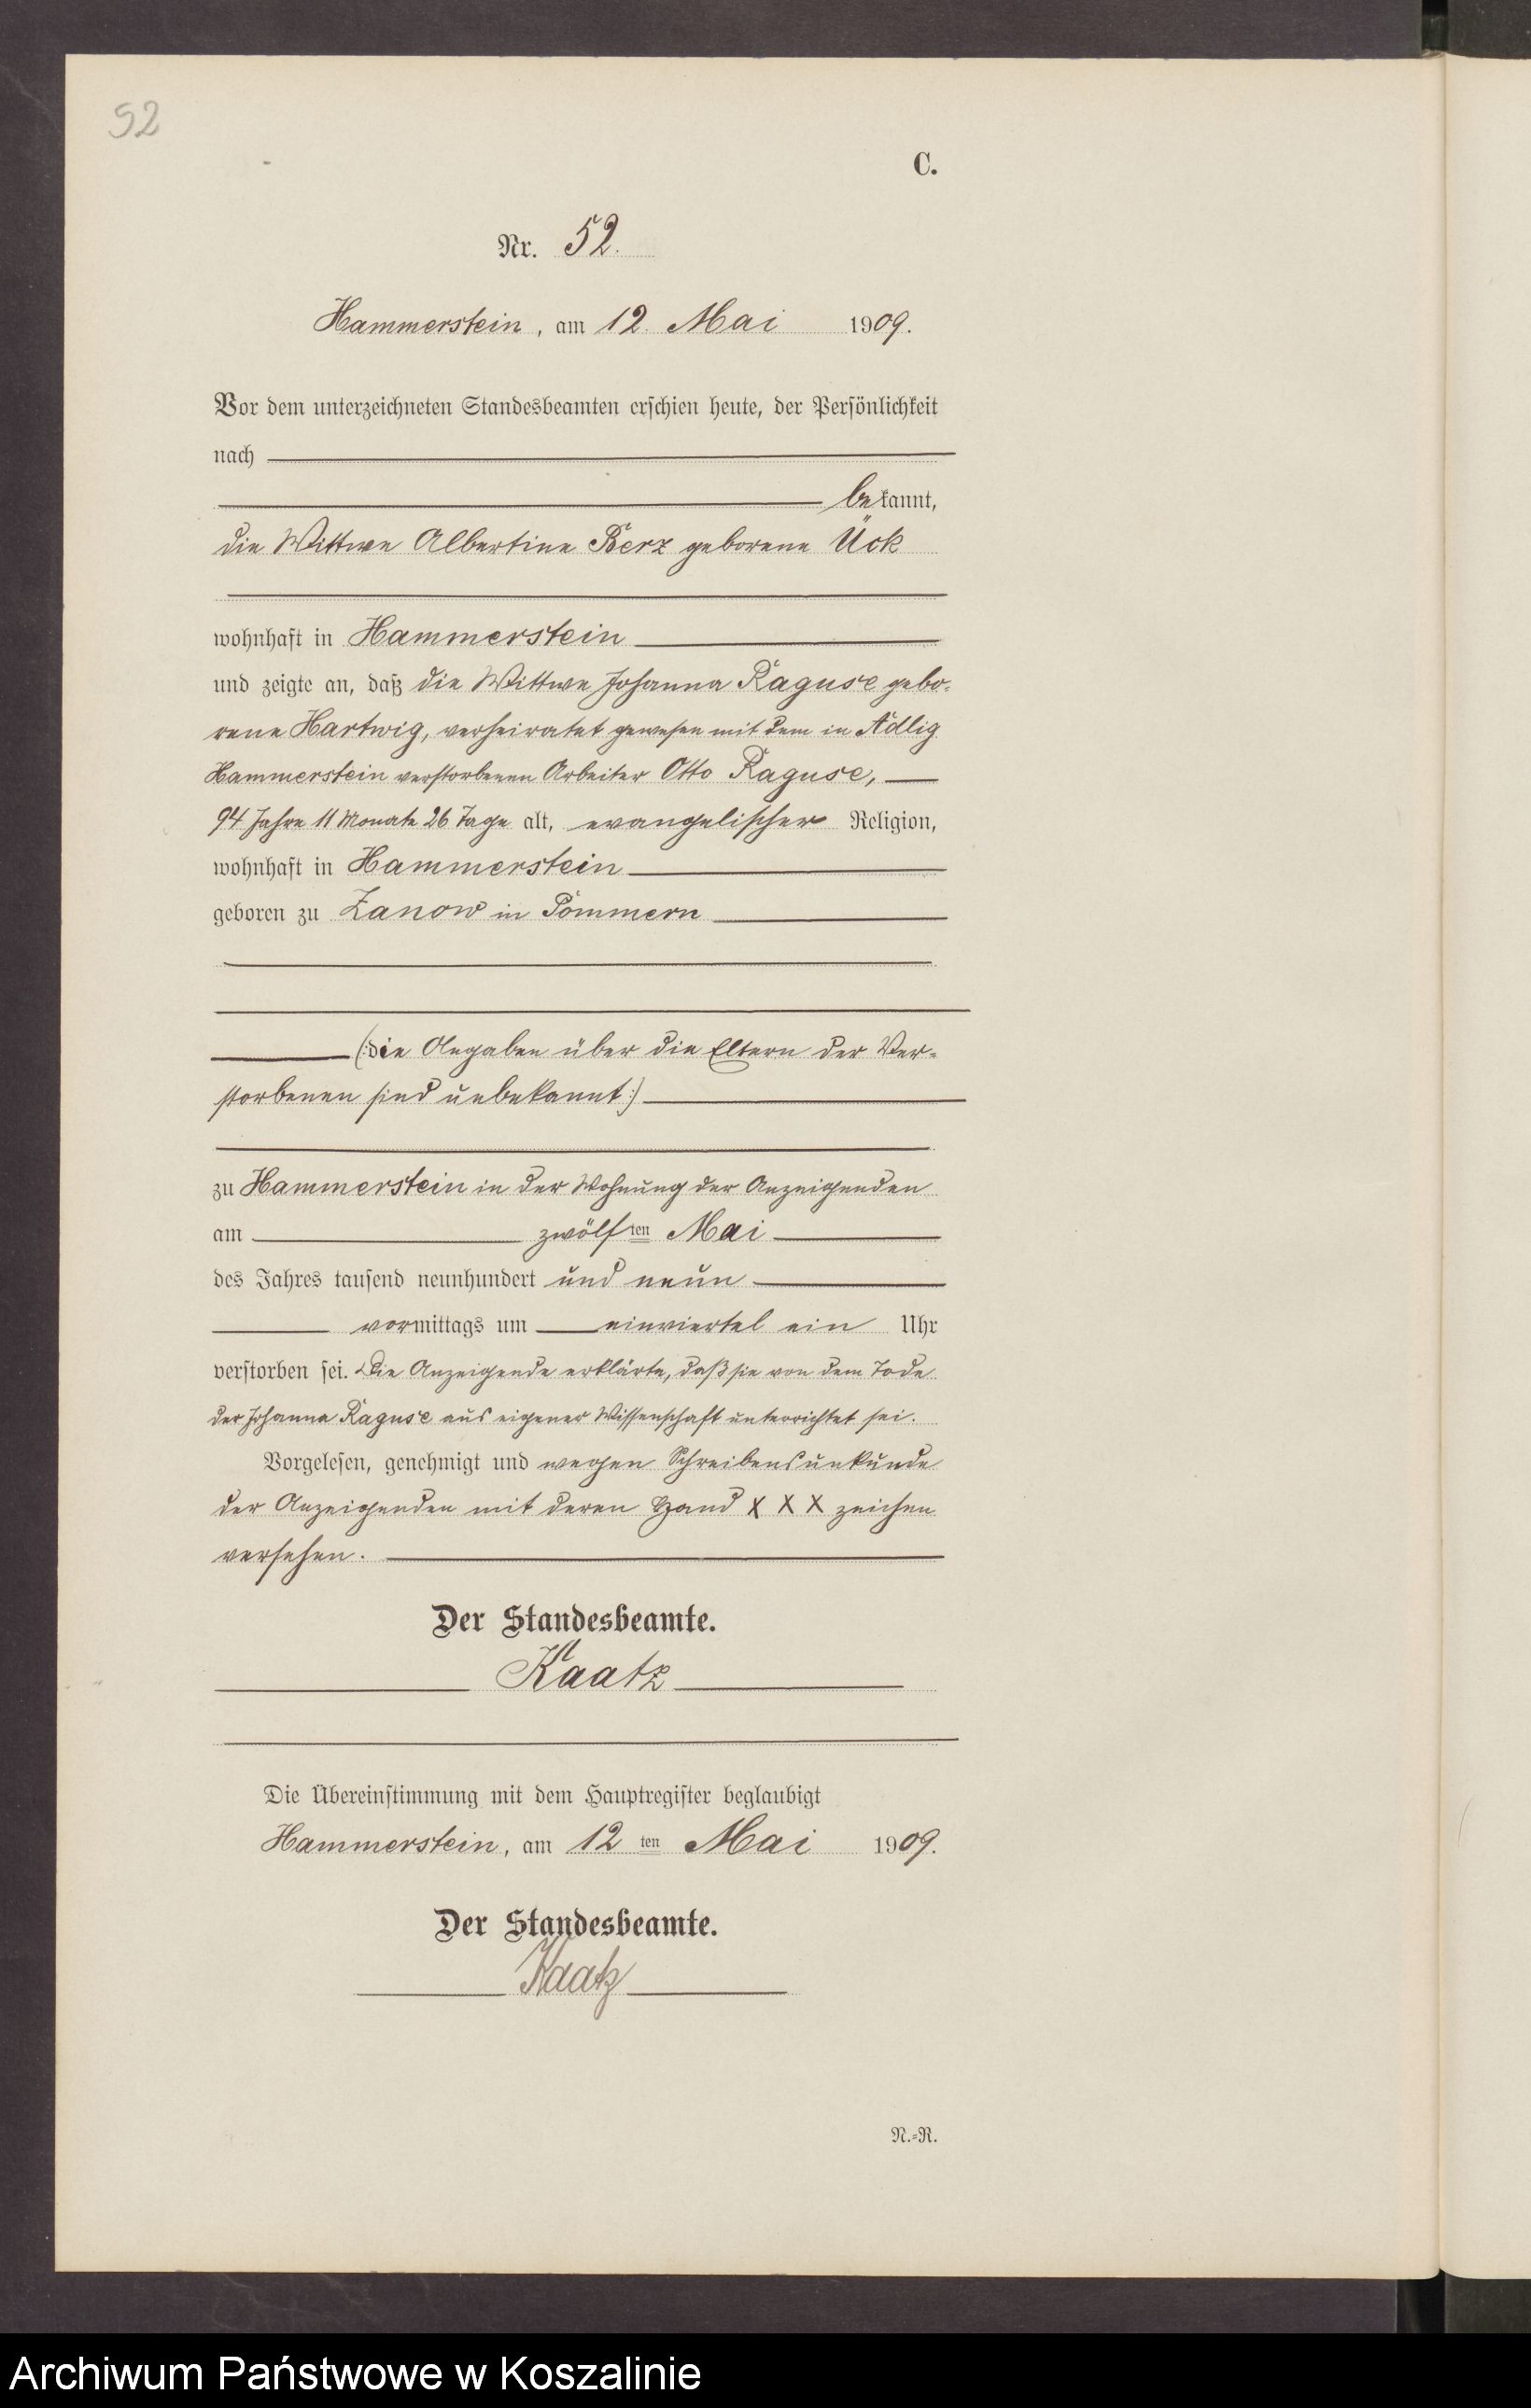 52
C.
Nr. 52.
Hammerstein, am 12. Mai 1909.
Vor dem unterzeichneten Standesbeamten erschien heute, der Persönlichkeit
nach
bekannt,
die Wittwe Albertine Berz geborene Ück
wohnhaft in Hammerstein
und zeigte an, daß die Wittwe Johanna Raguse gebo-
rene Hartwig, verheiratet gewesen mit dem in Adlig
Hammerstein verstorbenen Arbeiter Otto Raguse,
94 Jahre 11 Monate 26 Tage alt, evangelischer Religion,
wohnhaft in Hammerstein
geboren zu Zanow in Pommern
(: die Angaben über die Eltern der Ver-
storbenen sind unbekannt :)
zu Hammerstein in der Wohnung der Anzeigenden
am zwölften Mai
des Jahres tausend neunhundert und neun
vormittags um einviertel ein Uhr
verstorben sei. Die Anzeigende erklärte, daß sie von dem Tode
der Johanna Raguse aus eigener Wissenschaft unterrichtet sei.
Vorgelesen, genehmigt und wegen Schreibensunkunde
der Anzeigenden mit deren Hand X X X zeichen
versehen.
Der Standesbeamte.
Kaatz
Die Übereinstimmung mit dem Hauptregister beglaubigt
Hammerstein, am 12 ten Mai 1909.
Der Standesbeamte.
Kaatz
N.-R.
Archiwum Państwowe w Koszalinie